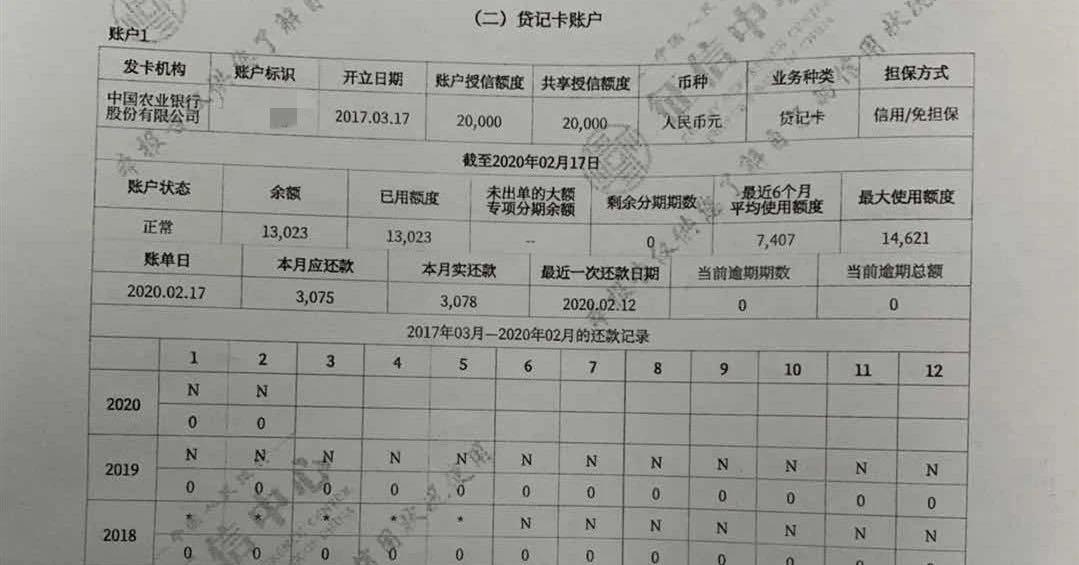 （二）贷记卡账户
账户1
发卡机构 账户标识 开立日期 账户授信额度 共享授信额度 币种 业务种类 担保方式
中国农业银行
股份有限公司 2017.03.17 20,000 20,000 人民币元 贷记卡 信用/免担保
截至2020年02月17日
账户状态 余额 已用额度 未出单的大额
专项分期余额 剩余分期期数 最近6个月
平均使用额度 最大使用额度
正常 13,023 13,023 -- 0 7,407 14,621
账单日 本月应还款 本月实还款 最近一次还款日期 当前逾期期数 当前逾期总额
2020.02.17 3,075 3,078 2020.02.12 0 0
2017年03月—2020年02月的还款记录
1 2 3 4 5 6 7 8 9 10 11 12
2020 N N
0 0
2019 N N N N N N N N N N N N
0 0 0 0 0 0 0 0 0 0 0 0
2018 * * * * * N N N N N N N
0 0 0 0 0 0 0 0 0 0 0 0